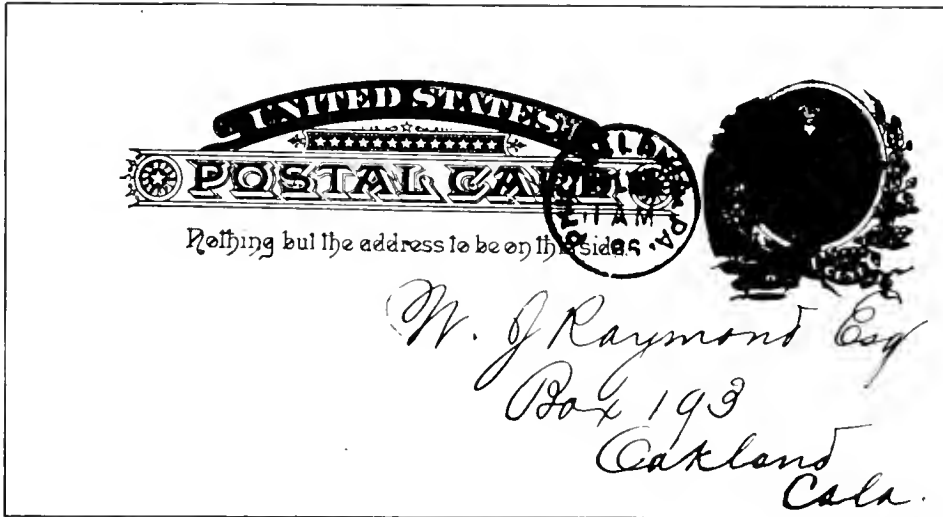 UNITED STATES
POSTAL CARD
Nothing but the address to be on this side.
PA.
11 AM
W. J Raymond Esq
Box 193
Oakland
Cala.